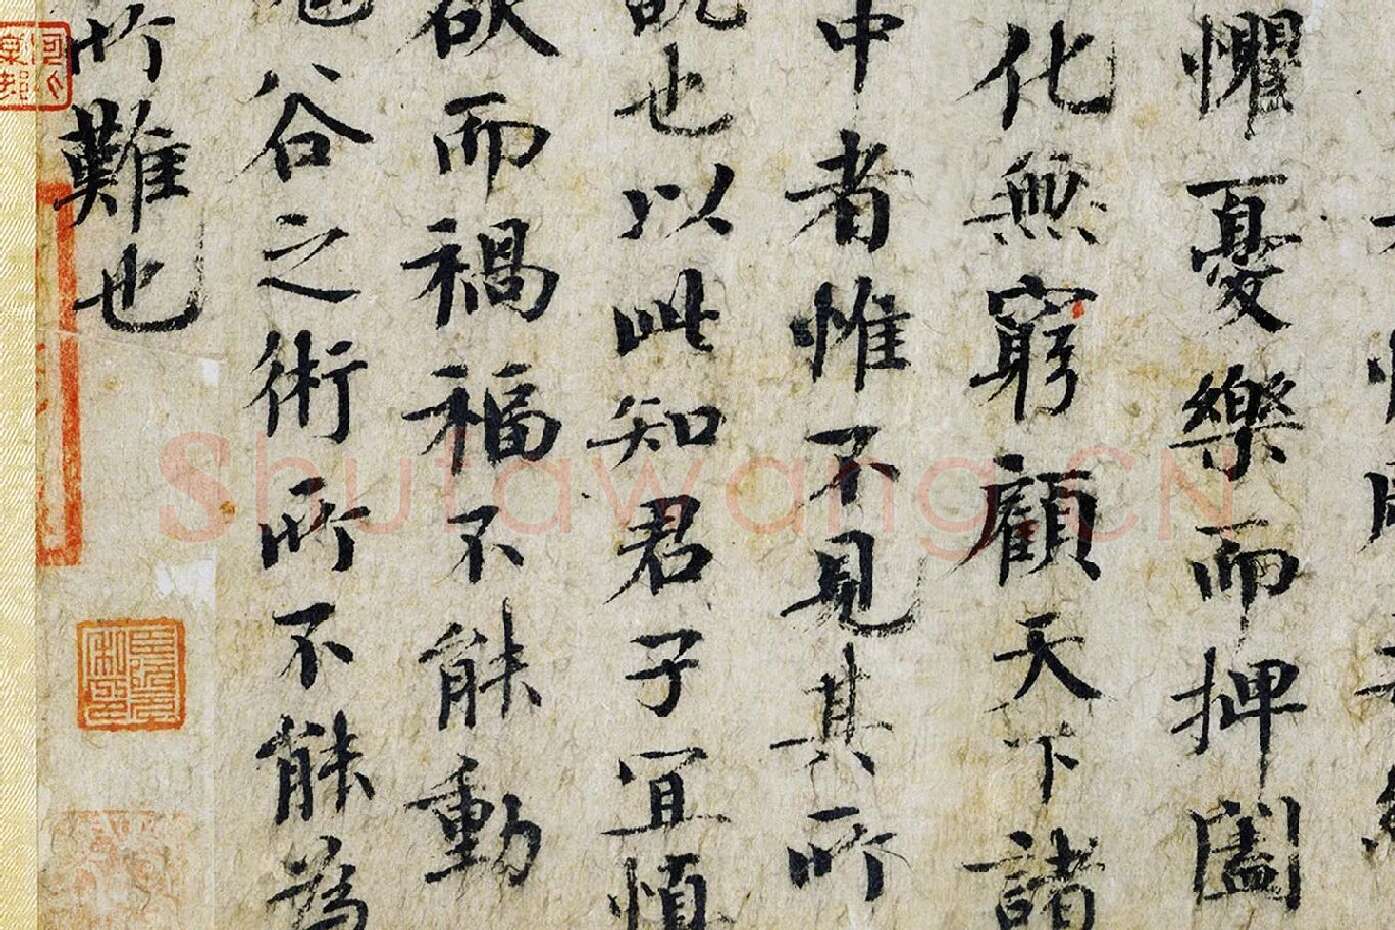 懼憂樂而捭闔
化無窮顧天下諸
中者惟不見其所
說也以此知君子宜慎
欲而禍福不能動
谷之術所不能為
所難也
Shufawang.CN